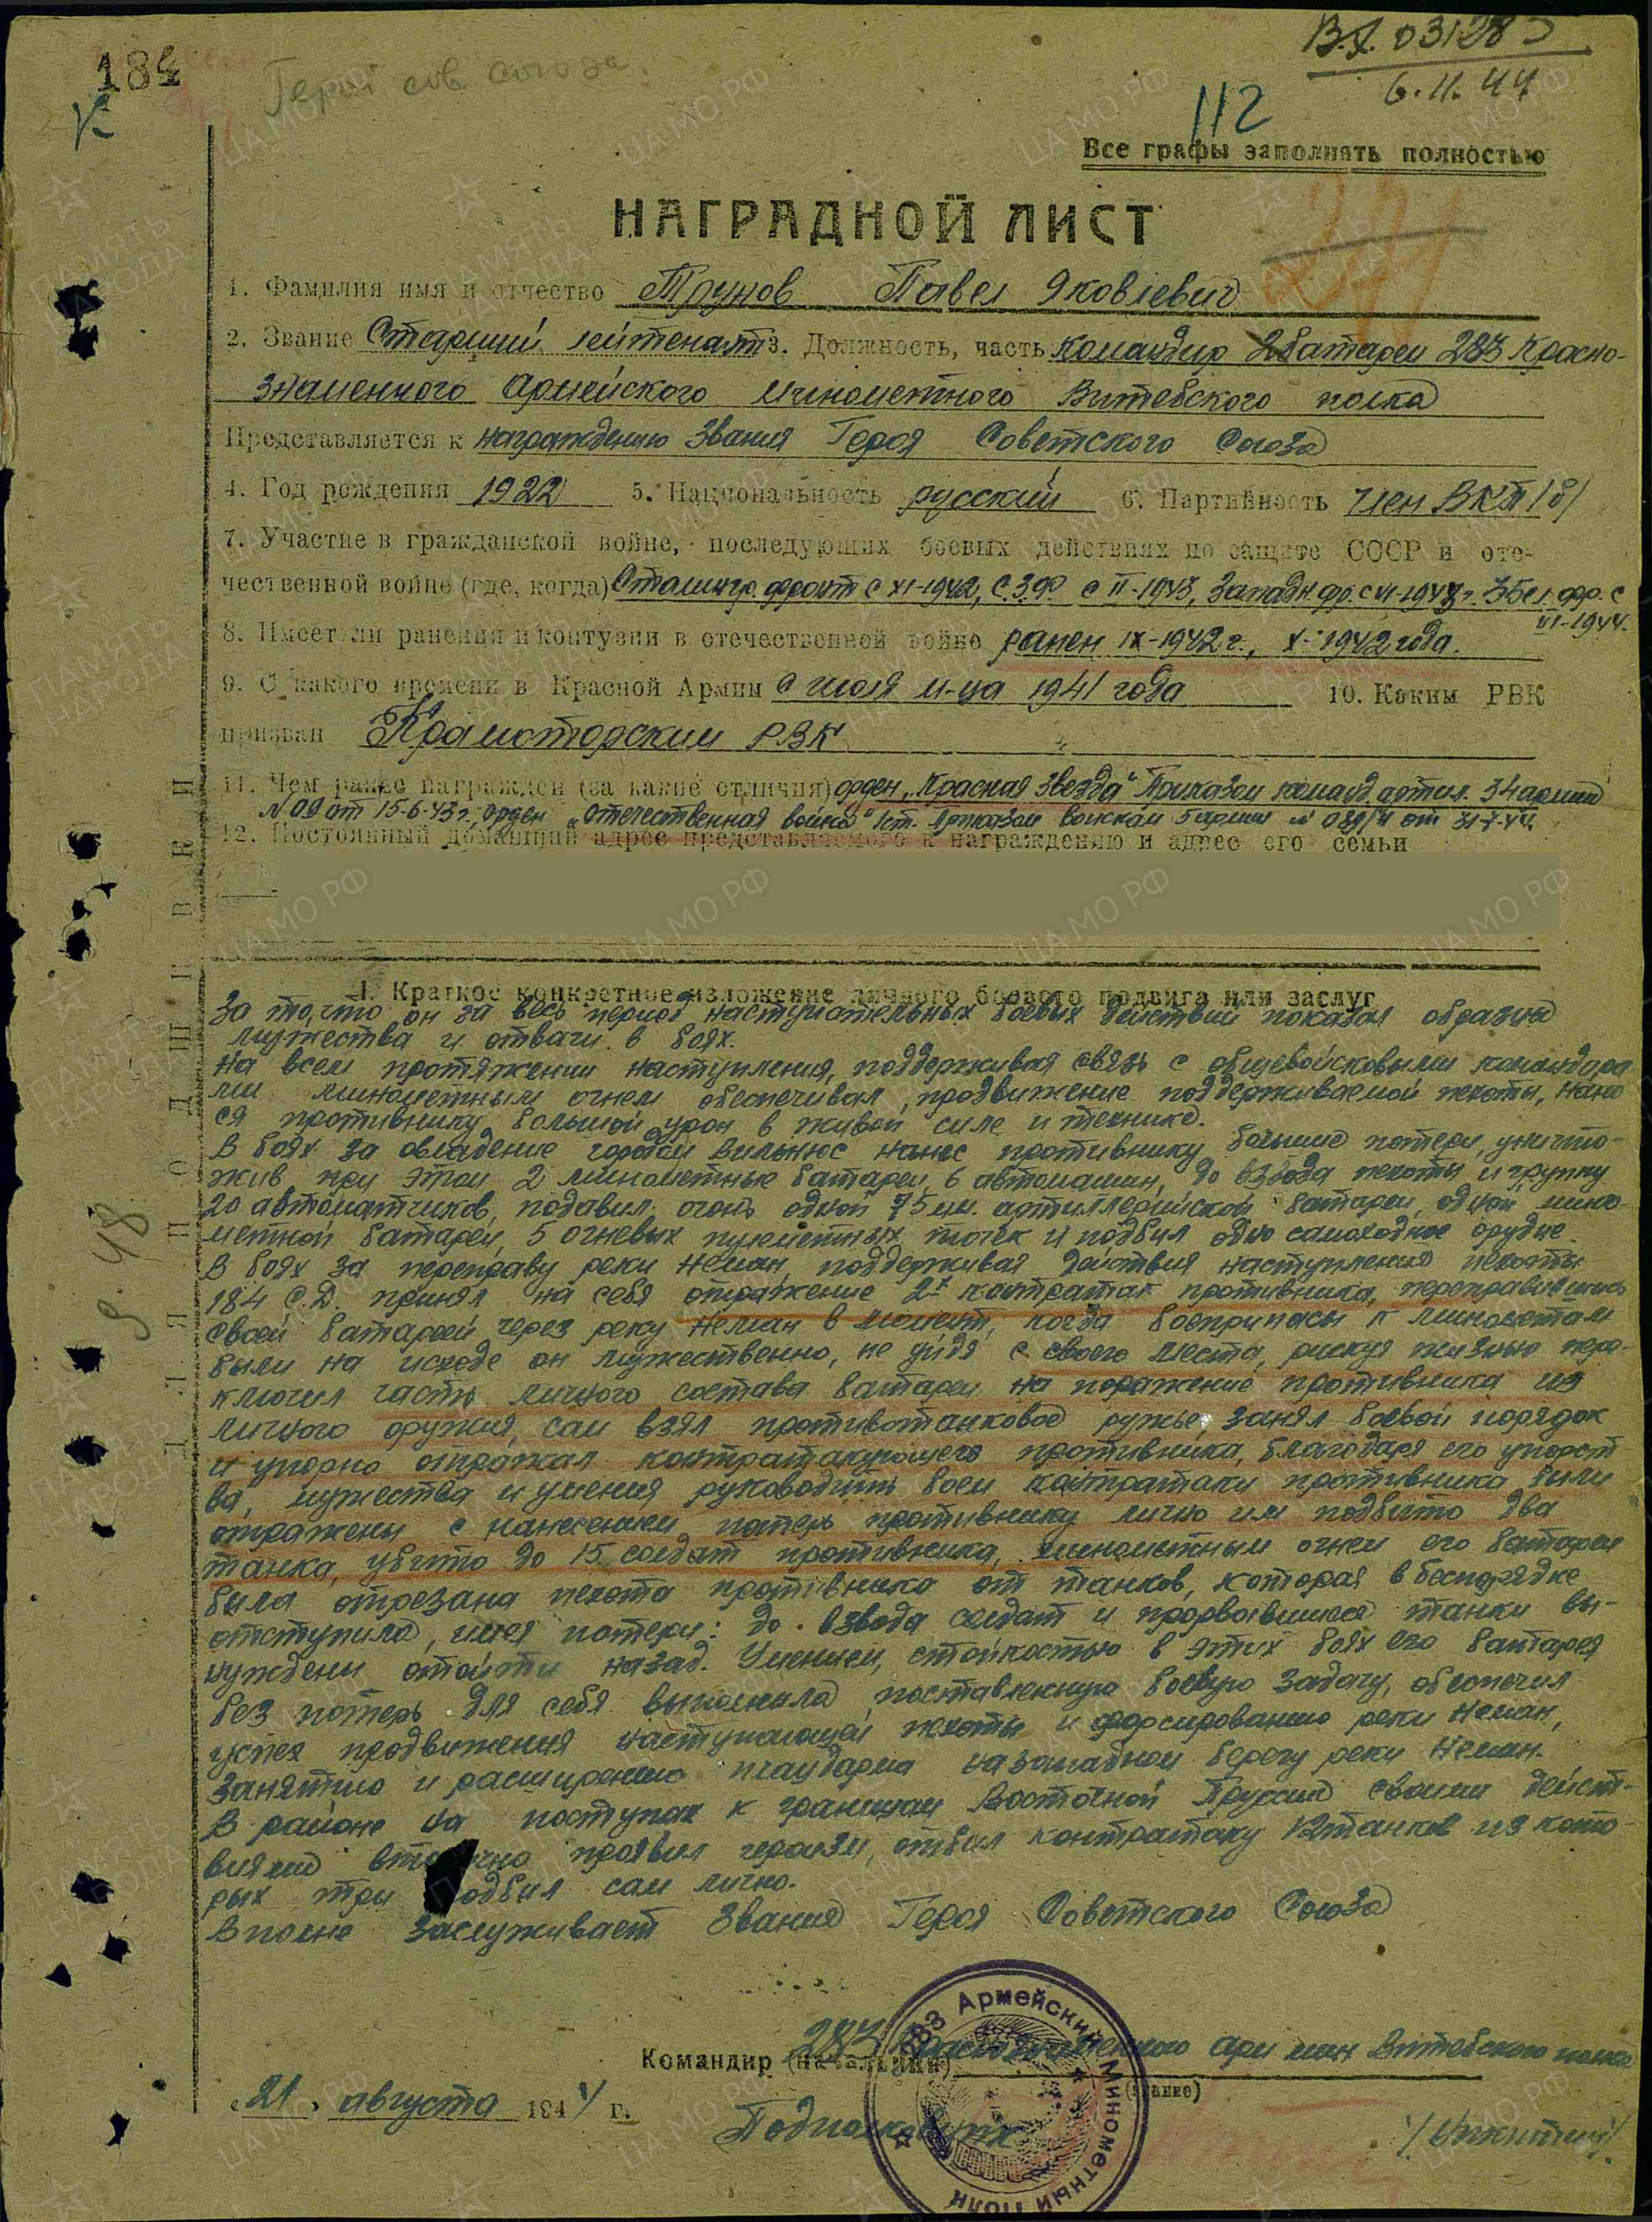 184
Герой сов союза.
В.Х. 031283
6.11.44
112
Все графы заполнять полностью
НАГРАДНОЙ ЛИСТ
1. Фамилия имя и отчество Трунов Павел Яковлевич
2. Звание Старший лейтенант 3. Должность, часть Командир 2 батареи 283 Красно-
знаменного армейского минометного Витебского полка
Представляется к награждению звания Героя Советского Союза
4. Год рождения 1922 5. Национальность русский 6. Партийность член ВКП/б/
7. Участие в гражданской войне, последующих боевых действиях по защите СССР и оте-
чественной войне (где, когда) Сталингр. фронт с XI-1942, С.З.Ф с II-1943, Западн. фр. с VI-1943 г. 3 Бел. фр. с
VI-1944.
8. Имеет ли ранения и контузии в отечественной войне ранен IX-1942 г., X-1942 года.
9. С какого времени в Красной Армии с июля м-ца 1941 года 10. Каким РВК
призван Краматорским РВК
11. Чем ранее награжден (за какие отличия) орден „Красная Звезда" Приказом команд. артил. 34 армии
№ 09 от 15-6-43 г. орден „Отечественная война" 1 ст. Приказом войскам 5 армии № 089/н от 31-7-44
12. Постоянный домашний адрес представляемого к награждению и адрес его семьи
ДЛЯ ПОДШИВКИ
1. Краткое конкретное изложение личного боевого подвига или заслуг
За то, что он за весь период наступательных боевых действий показал образцы
мужества и отваги в боях.
На всем протяжении наступления, поддерживая связь с общевойсковыми командира
ми минометным огнем обеспечивал продвижение поддерживаемой пехоты, нано
ся противнику большой урон в живой силе и технике.
В боях за овладение городом Вильнюс нанес противнику большие потери, уничто-
жив при этом 2 минометные батареи, 6 автомашин, до взвода пехоты и группу
20 автоматчиков, подавил огонь одной 75 мм. артиллерийской батареи, одной мино-
метной батареи, 5 огневых пулеметных точек и подбил одно самоходное орудие.
В боях за переправу реки Неман, поддерживая действия наступления пехоты
184 С.Д. принял на себя отражение 2х контратак противника, переправившись
своей батареей через реку Неман в момент, когда боеприпасы к минометам
были на исходе он мужественно, не уйдя с своего места, рискуя жизнью пере-
ключил часть личного состава батареи на поражение противника из
личного оружия, сам взял противотанковое ружье, занял боевой порядок
и упорно отражал контратакующего противника, благодаря его упорст
ва, мужества и умения руководить боем контратаки противника были
отражены с нанесением потерь противнику лично им подбито два
танка, убито до 15 солдат противника, минометным огнем его батареи
была отрезана пехота противника от танков, которая в беспорядке
отступила, имея потери: до взвода солдат и прорвавшиеся танки вы-
нуждены отойти назад. Умением, стойкостью в этих боях его батарея
без потерь для себя выполнила поставленную боевую задачу, обеспечил
успех продвижения наступающей пехоты и форсированию реки Неман,
занятию и расширению плацдарма на западном берегу реки Неман.
В районе на поступах к границам Восточной Пруссии своими дейст-
виями вторично проявил героизм, отбил контратаку 12 танков из кото-
рых три подбил сам лично.
Вполне заслуживает Звания Героя Советского Союза
Командир (начальник) 283 Краснознаменного арм мин Витебского полка
(звание)
„21" августа 1944 г.
Подполковник
283 Армейский Минометный Полк
д. 48
ПАМЯТЬ НАРОДА
ЦА МО РФ